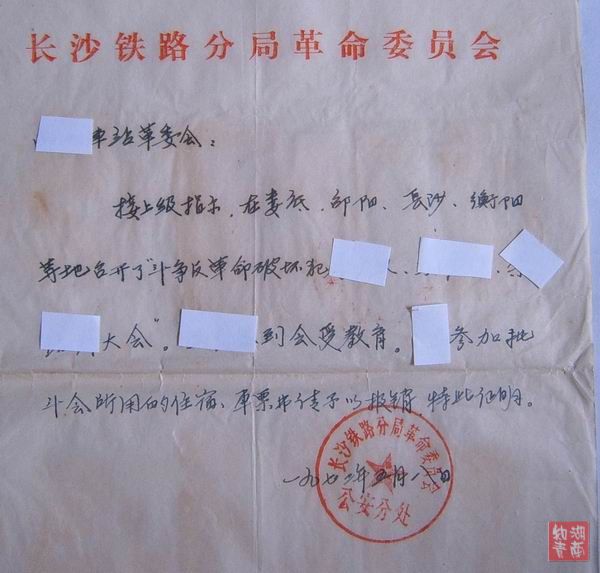 长沙铁路分局革命委员会
车站革委会：
接上级指示，在娄底、邵阳、长沙、衡阳
等地召开了“斗争反革命破坏犯
大会”。到会受教育。参加批
斗会所用的住宿、车票书请予以报销 特此证明。
长沙铁路分局革命委员会
公安分处
一九七 年五月 日
湖南